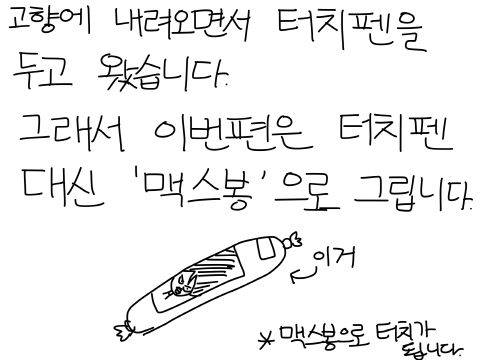 고향에 내려오면서 터치펜을
두고 왔습니다.
그래서 이번편은 터치펜
대신 '맥스봉'으로 그립니다.
이거
*맥스봉으로 터치가
됩니다.